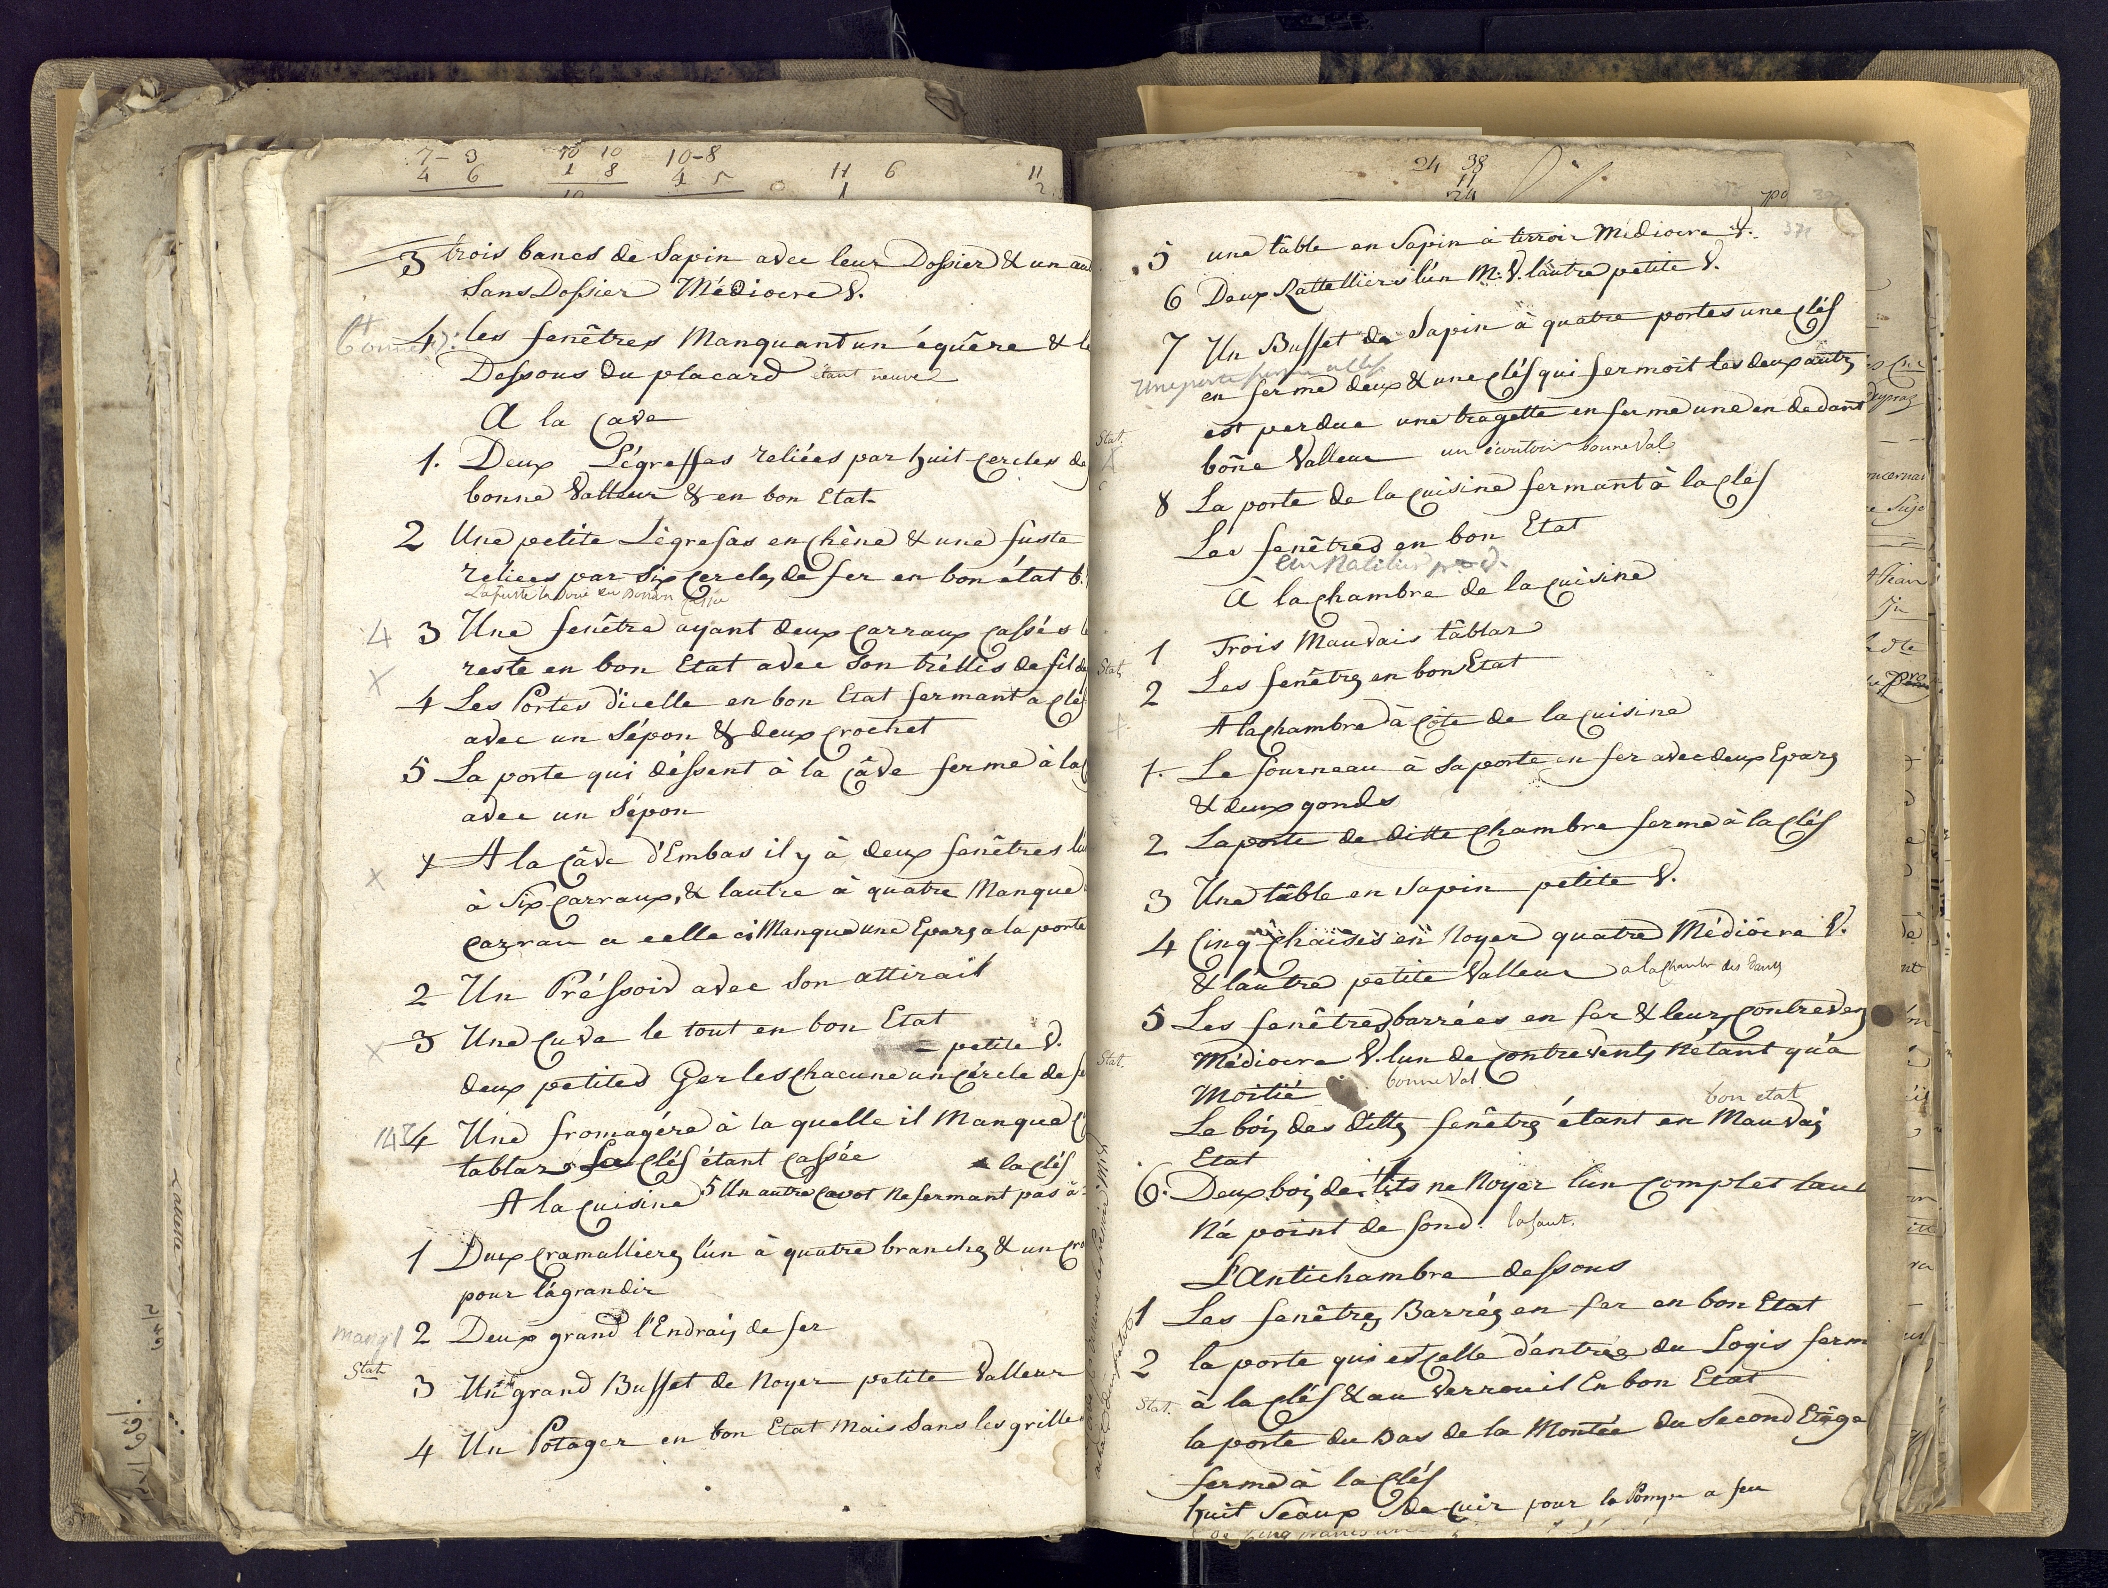 7-3 10 10 10-8 11 6 11
4 6 1 8 4 5 1 2
3 trois bancs de Sapin avec leur Dossier & un au
Sans Dossier Médiocre V.
4. les fenêtres Manquant un équêre & le
Dessous du placard étant neuve
A la Cave
1. Deux Légreffas reliées par huit Cercles de
bonne Valleur & en bon Etat
2 Une petite Légrefas en Chêne & une fuste
reliees par Six Cercles de fer en bon état b.
Lafuste
4 3 Une fenêtre ayant deux Carraux Cassés
X reste en bon Etat avec Son tréllis de fil de
4 Les Portes d'icelle en bon Etat fermant a Clés
avec un Sépon & deux Crochet
5 La porte qui déssent à la Câve ferme à la
avec un Sépon
X A la Câve d'Embas il y à deux fenêtres l'u
X à Six Carraux, & lautre à quatre Manque
Carrau a celle ci Manque une Epars a la porte
2 Un Préssoir avec Son attirail
X 3 Une Cuve le tout en bon Etat
petite V.
deux petites Gerles Chacune un Cércle de fe
4 Une fromagére à la quelle il Manque
tablar Clés étant Cassée
la Clés
A la Cuisine 5 Un autre Cavot ne fermant pas à
1 Deux Cramallieres l'un à quatre branches & un Cro
pour l'agrandir
2 Deux grand l'Endrais de fer
Stat.
3 Un grand Buffet de Noyer petite Valleur
4 Un Potager en bon Etat Mais Sans les grille
24 38
11
24
371
5 une tâble en Sapin à tirroir Médiocre V.
6 Deux Rattelliers l'un M: V. l'autre petite V.
7 Un Buffet de Sapin à quatre portes une Clés
Une porte
en ferme deux & une Clés qui fermoit les deux autres
est perdue une tragette en ferme une en dedant
Stat.
X
boñe Valleur un bonne Val
8 La porte de la Cuisine fermant à la Clés
Les fenêtres en bon Etat
À la Chambre de la Cuisine
1 Trois Mauvais tâblar
Stat.
2 Les fenêtres en bon Etat
A la Chambre à Côte de la Cuisine
1. Le fourneau à Sa porte en fer avec deux Epars
& deux gonds
2 La porte de ditte Chambre ferme à la Clés
3 Une tâble en Sapin petite V.
4 Cinq Chaises en Noyer quatre Médiôcre V.
& l'autre petite Valleur a la Chambr des
5 Les fenêtres barrées en fer & leurs Contreven
Stat.
Médiocre V. lun de Contrevents N'étant qu'à
Moitié bonne Val
bon etat
Le bois des dittes fenêtres étant en Mauvais
Etat
6. Deux bois de lits ne Noyer l'un Complet laut
N'á point de fond. la faut.
L'Antichambre dessous
1 Les fenêtres Barrés en fer en bon Etat
2 la porte qui est Celle d'éntrée du Logis ferm
Stat.
à la Clés & au Verrouil En bon Etat
la porte du Bas de la Montée du Second Etâge
ferme à la Clés
huit Seaux de Cuir pour la Pompe a feu